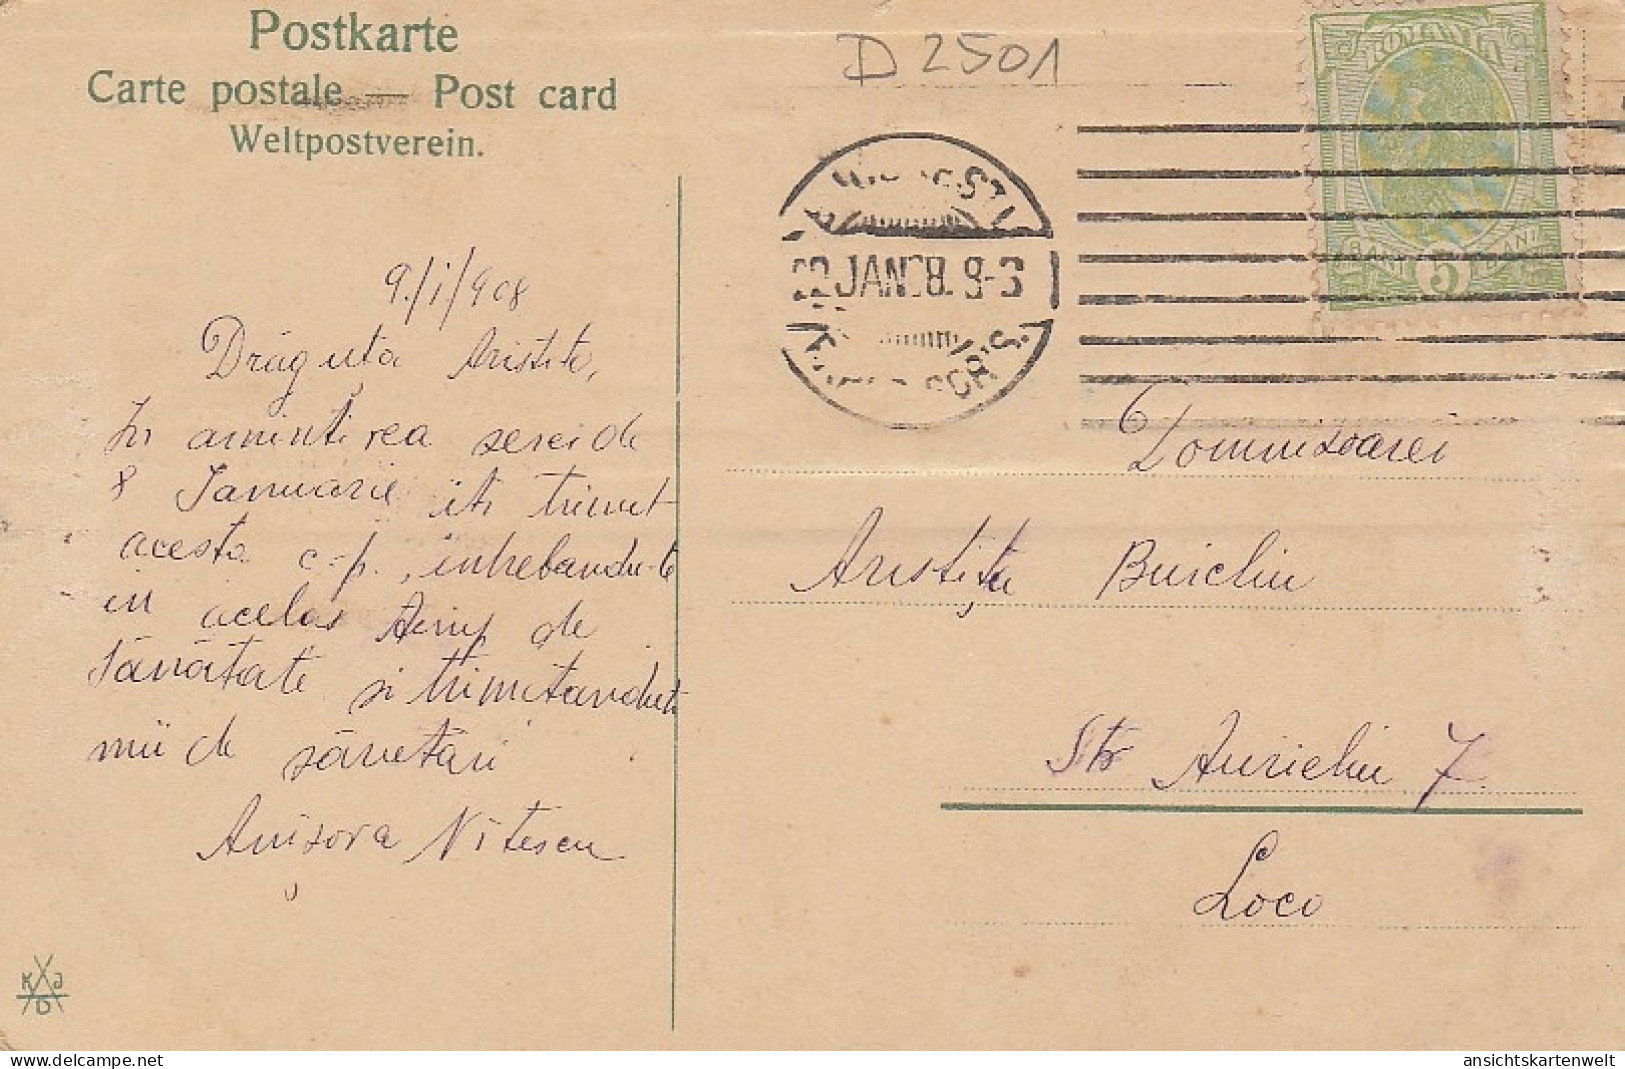 Postkarte
Carte postale — Post card
Weltpostverein.
D 2501
ROMANIA
5
JAN 8. 9-3
9/I/908
Drăguța Aristito,
In amintirea serei de
8 Ianuarie iți trimet
acesta c-p., intrebandu-te
in acelas timp de
sănătate și trimitandu-ti
mii de sărutări
Anișora Nitescu
Domnisoarei
Aristița Buicliu
Str Aurieliu 7
Loco
K J
D
delcampe.net
ansichtskartenwelt